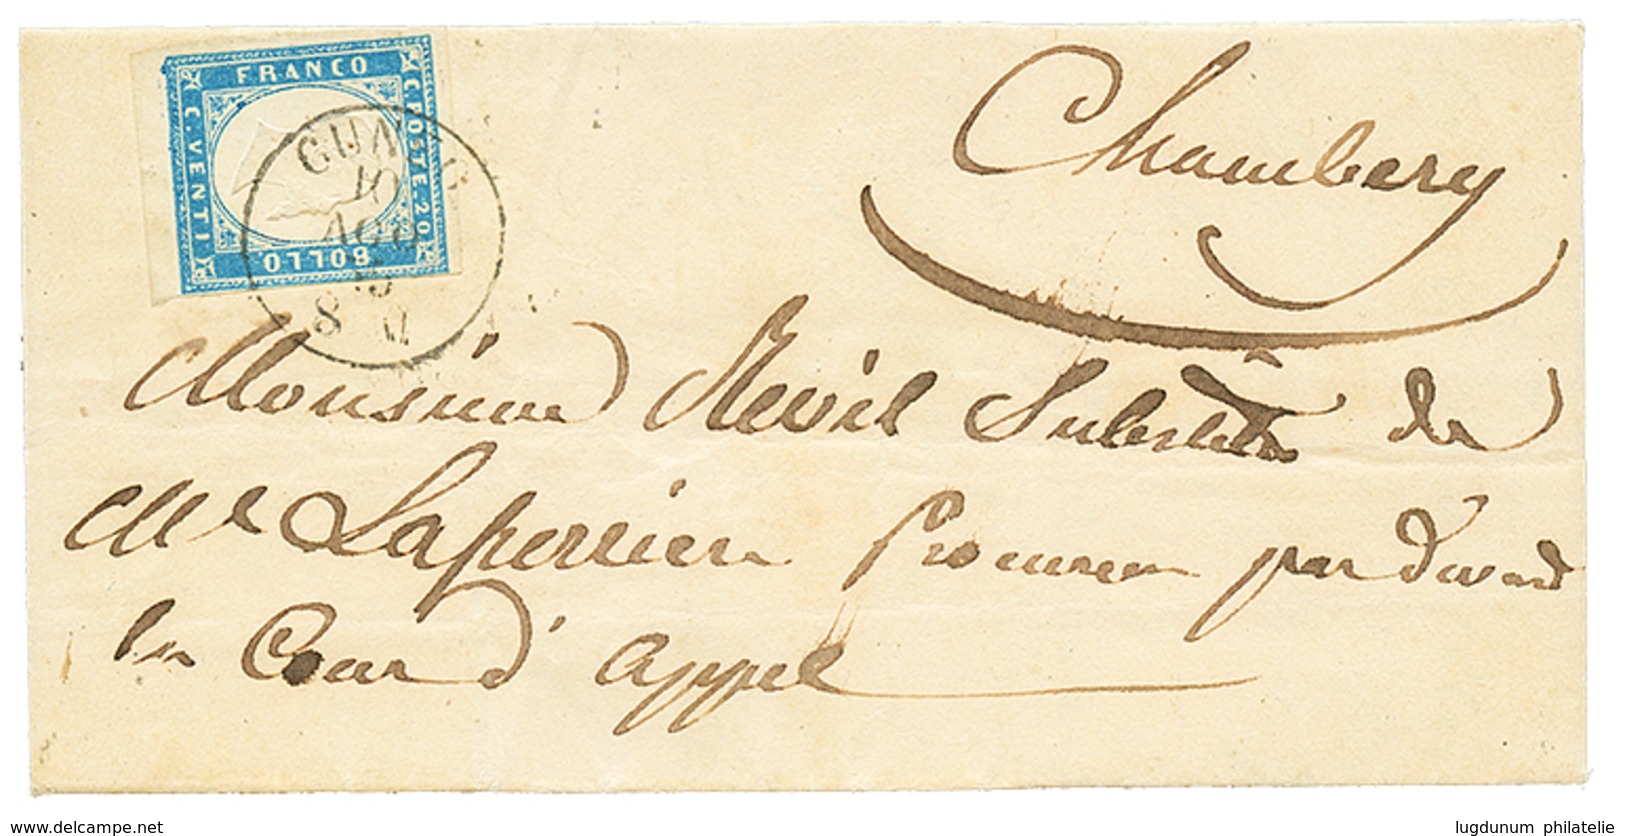 FRANCO
C. POSTE. 20
C. VENTI
BOLLO
10
AGO
Chambery
Monsieur Revil Substitut de
Me Laperrier Procureur par devant
la Cour d'appel
delcampe.net
lugdunum philatelie